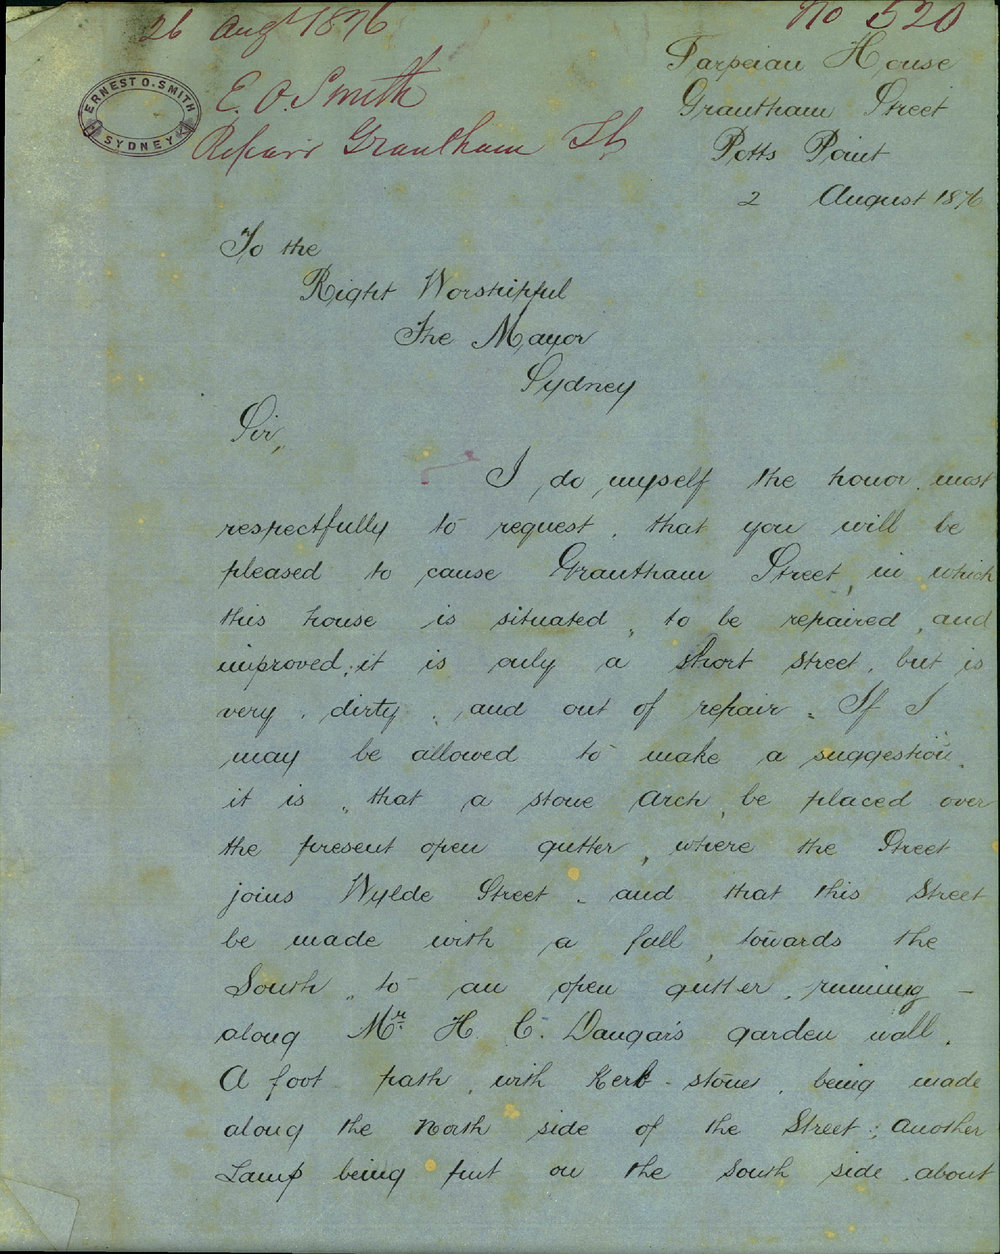 26 Augt 1876
No 520
E. O. Smith
Repair Grantham St
ERNEST O. SMITH
SYDNEY
Tarpeian House
Grantham Street
Potts Point
2 August 1876
To the
Right Worshipful
The Mayor
Sydney
Sir,,
I do myself the honor most
respectfully to request, that you will be
pleased to cause Grantham Street, in which
this house is situated, to be repaired, and
improved; it is only a short street, but is
very, dirty, and out of repair. If I
may be allowed to make a suggestion,
it is, that a stone arch, be placed over
the present open gutter, where the Street
joins Wylde Street - and that this Street
be made with a fall, towards the
South, to an open gutter, running -
along Mr. H. C. Dangar's garden wall.
A foot path, with Kerb-stones, being made
along the North side of the Street; another
Lamp being put on the south side, about